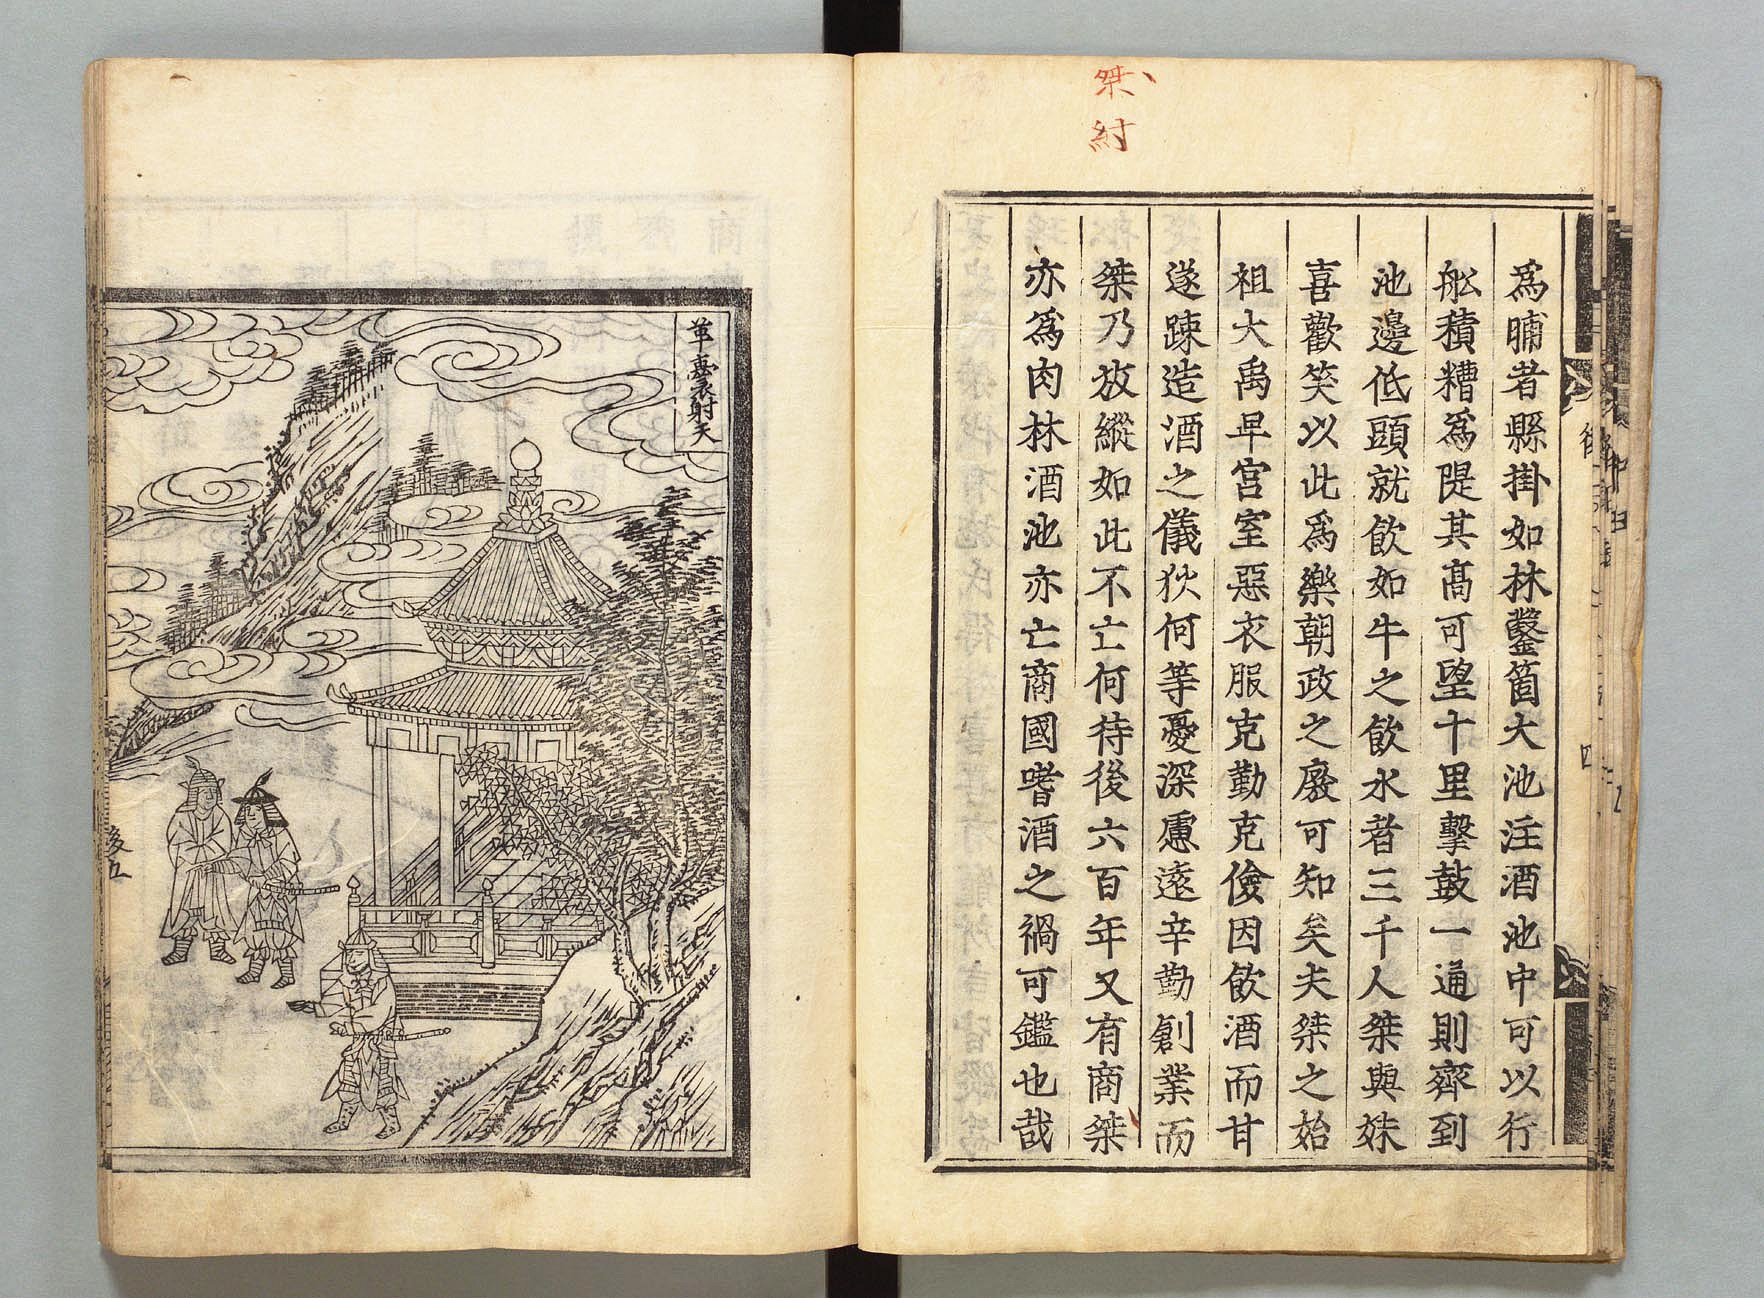 桀
紂
爲脯者縣掛如林鑿箇大池注酒池中可以行
舩積糟爲隄其髙可望十里擊鼓一通則齊到
池邊低頭就飲如牛之飲水者三千人桀與妺
喜歡笑以此爲樂朝政之廢可知矣夫桀之始
祖大禹卑宮室惡衣服克勤克儉因飲酒而甘
遂踈造酒之儀狄何等憂深慮遠辛勤創業而
桀乃放縱如此不亡何待後六百年又有商桀
亦爲肉林酒池亦亡商國嗜酒之禍可鑑也哉
革囊射天
後五
四